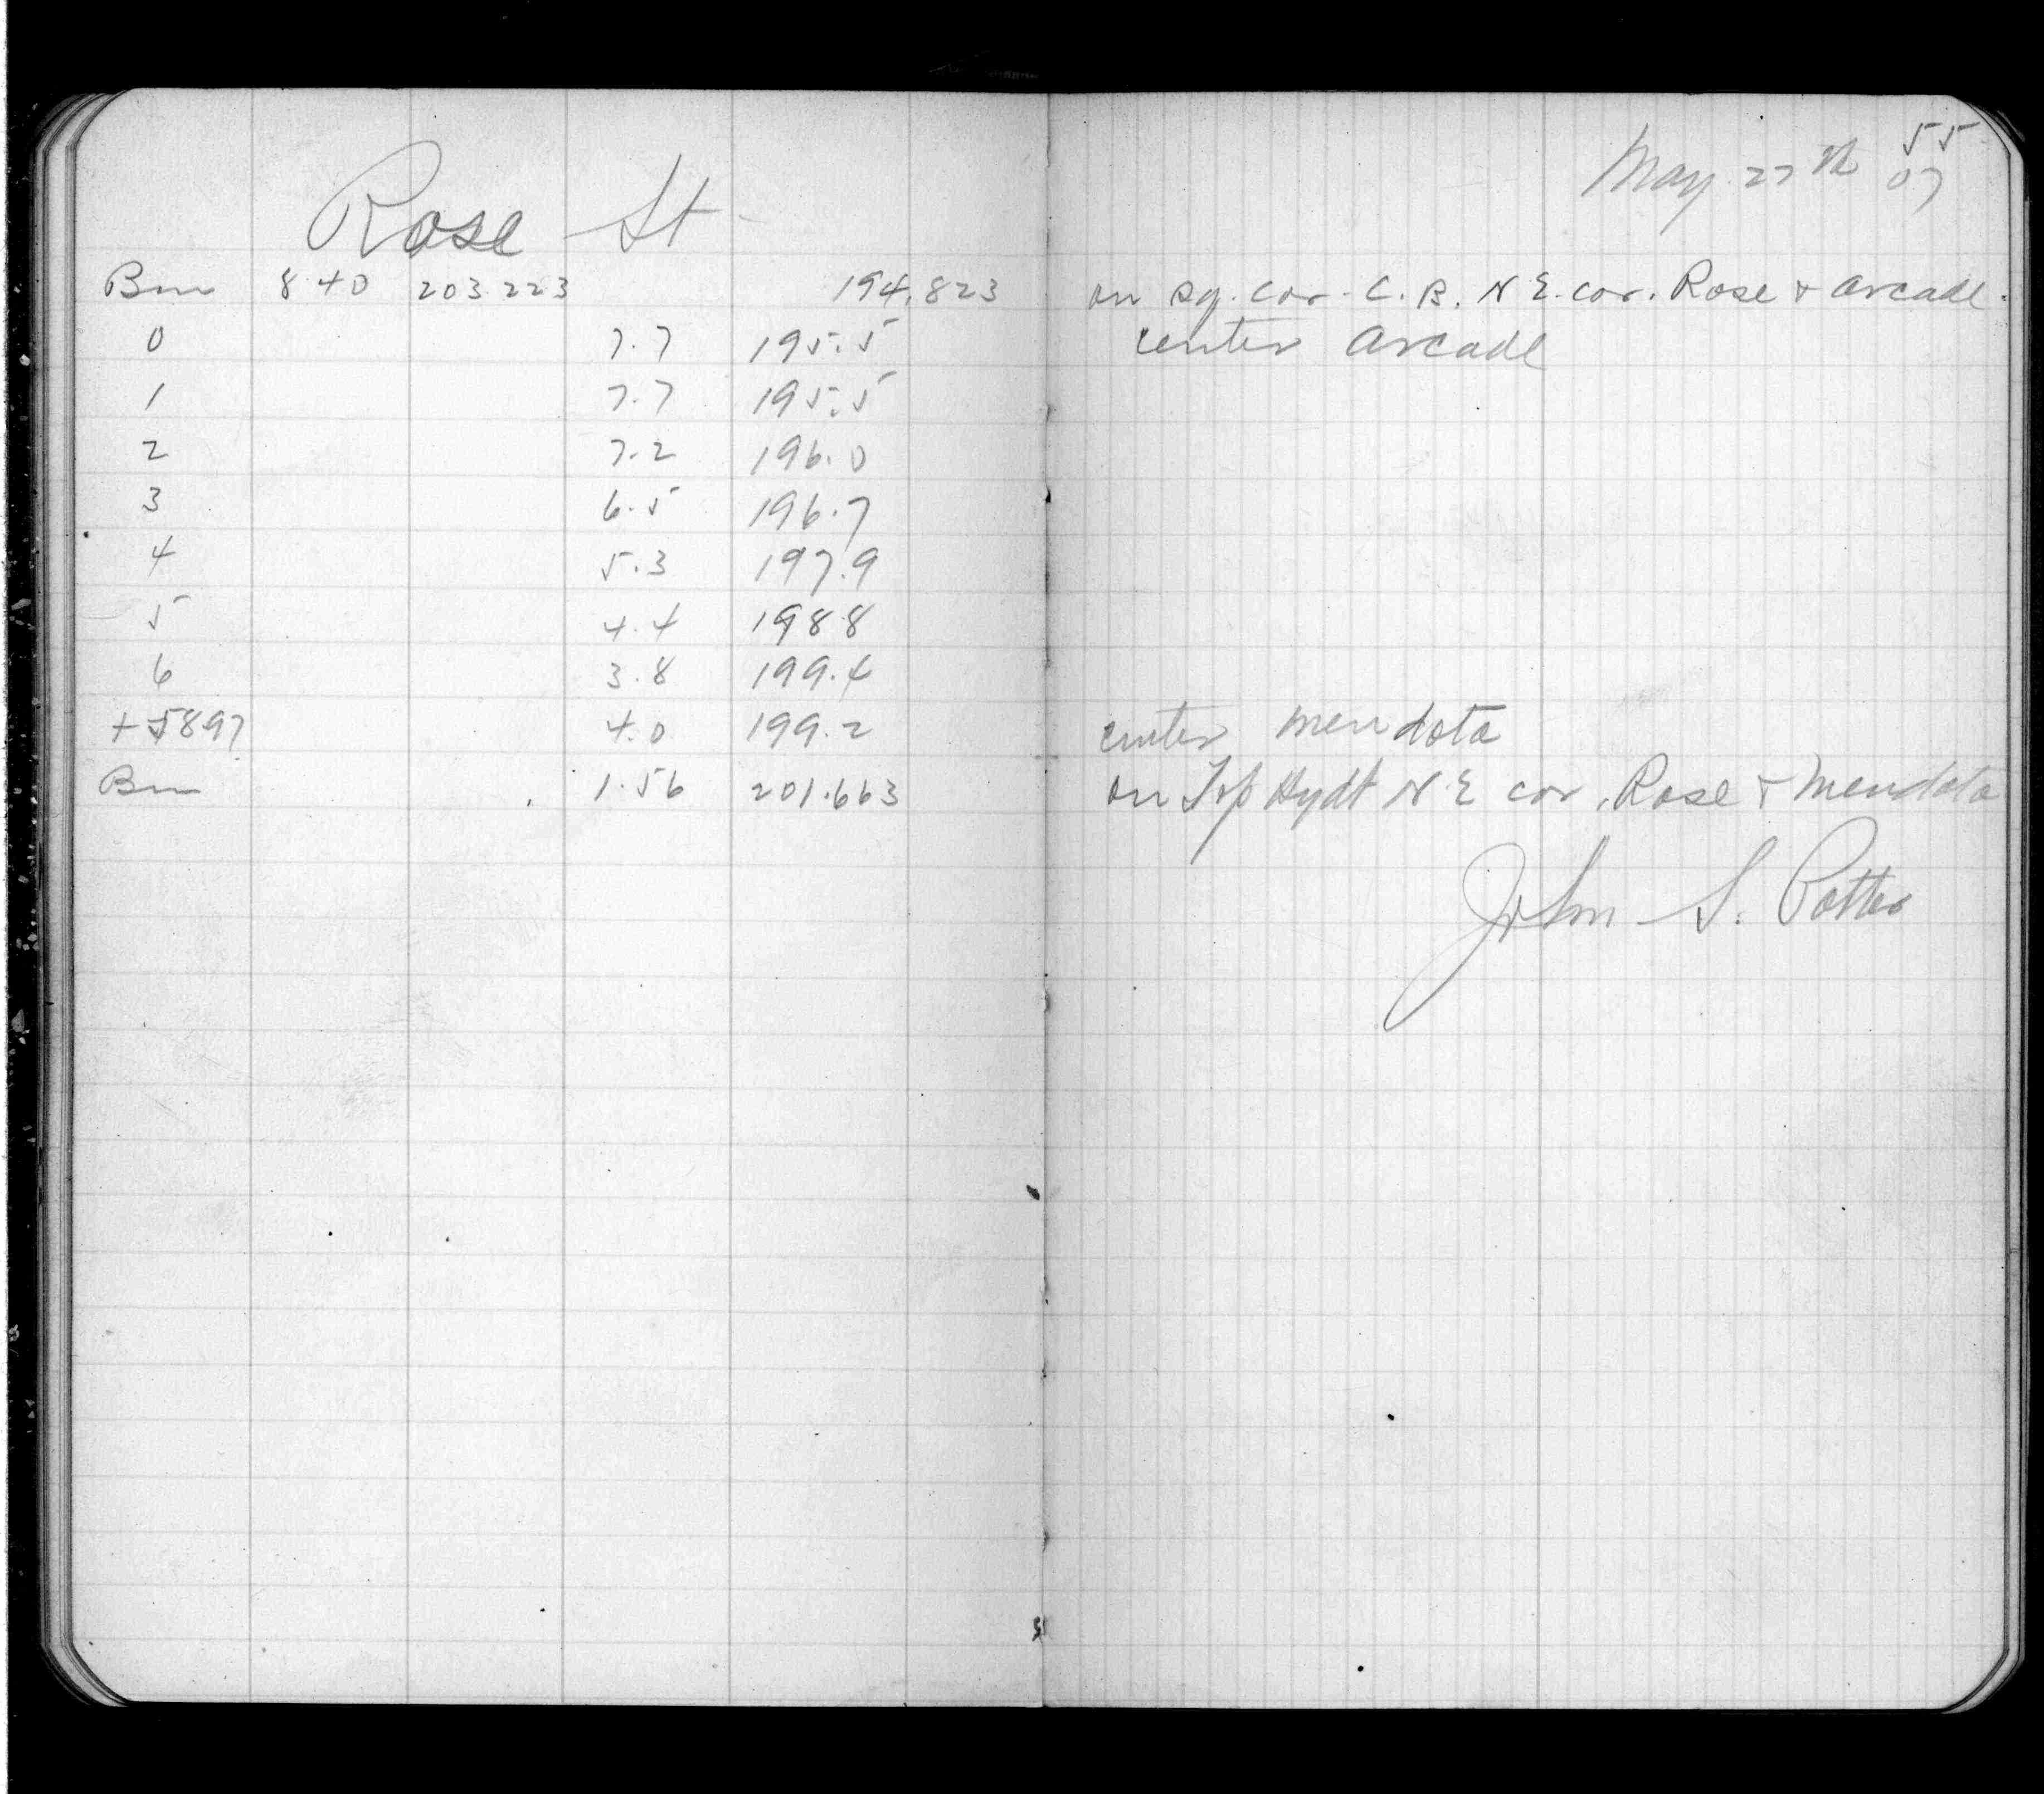 55
Rose St
May 27th 07
Bm 8.40 203.223 194.823 on sq. cor. C.B. N E. cor. Rose + Arcade.
0 7.7 195.5 center Arcade
1 7.7 195.5
2 7.2 196.0
3 6.5 196.7
4 5.3 197.9
5 4.4 198.8
6 3.8 199.4
+5897 4.0 199.2 center Mendota
Bm 1.56 201.663 on Top Hydt N E cor. Rose + Mendota
John S. Potter